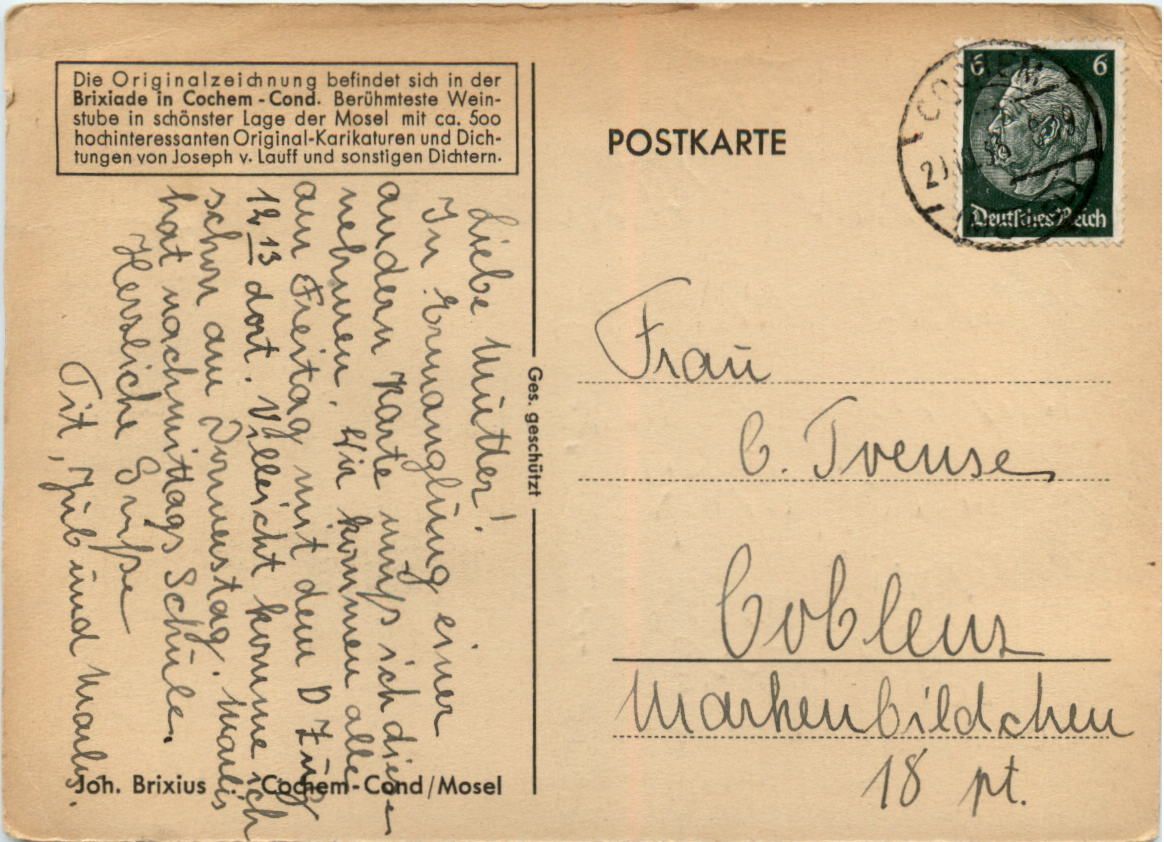 Die Originalzeichnung befindet sich in der
Brixiade in Cochem-Cond. Berühmteste Wein-
stube in schönster Lage der Mosel mit ca. 500
hochinteressanten Original-Karikaturen und Dich-
tungen von Joseph v. Lauff und sonstigen Dichtern.
POSTKARTE
6 6
Deutsches Reich
COCHEM
Liebe Mutter!
In Ermanglung einer
andern Karte muß ich diese
nehmen. Wir kommen alle
am Freitag mit dem D Zug
12 13 dort. Villeicht komme ich
schon am Donnerstag. Marlis
hat nachmittags Schule.
Herzliche Grüße
Tit, Jüb und Marlis.
Ges. geschützt
Frau
C. Tvense
Coblenz
Markenbildchen
18 pt.
Joh. Brixius . Cochem-Cond/Mosel